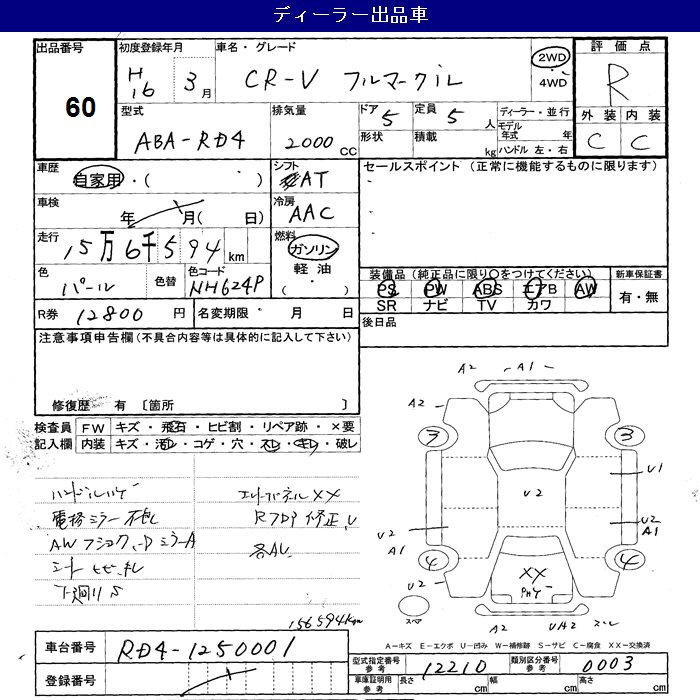 ディーラー出品車
出品番号 60
初度登録年月 H16 3月
車名・グレード CR-V フルマークiL
2WD・4WD
評価点 R
外装 内装
C C
型式 ABA-RD4
排気量 2000 CC
ドア 5 形状
定員 5 人 積載 kg
ディーラー・並行
モデル年式 年
ハンドル 左・右
車歴 自家用・( )
シフト AT
セールスポイント (正常に機能するものに限ります)
車検 年 月( 日)
冷房 AAC
走行 15万6千594 km
燃料 ガソリン 軽油 ・( )
色 パール 色替 色コード NH624P
装備品 (純正品に限り○をつけてください)
PS PW ABS エアB AW
SR ナビ TV カワ
新車保証書 有・無
R券 12800 円 名変期限 月 日
後日品
注意事項申告欄 (不具合内容等は具体的に記入して下さい)
修復歴 有 〔箇所 〕
検査員記入欄
FW キズ・飛石・ヒビ割・リペア跡・×要
内装 キズ・汚レ・コゲ・穴・スレ・キレ・破レ
電格ミラー
エンドパネル XX
RフロP 修正、U
各AU
156594km
A2 A1
A2
3 3
U1
U2
U2 U2
A1 A1
4 4
U2
XX
A2 UA2
A−キズ E−エクボ U−凹み W−補修跡 S−サビ C−腐食 XX−交換済
車台番号 RD4-1250001
登録番号
型式指定番号 参考 12210 類別区分番号 参考 0003
車庫証明用 参考 長さ cm 幅 cm 高さ cm